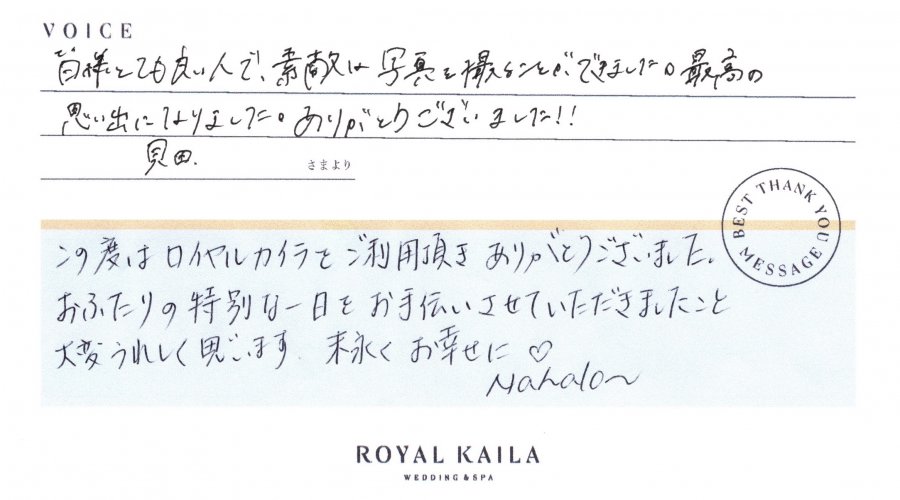 VOICE
皆様とても良い人で、素敵な写真を撮ることができました。最高の
思い出になりました。ありがとうございました!!
貝田. さまより
BEST THANK YOU MESSAGE
この度はロイヤルカイラをご利用頂きありがとうございました。
おふたりの特別な一日をお手伝いさせていただきましたこと
大変うれしく思います. 末永くお幸せに♡
Mahalo~
ROYAL KAILA
WEDDING & SPA